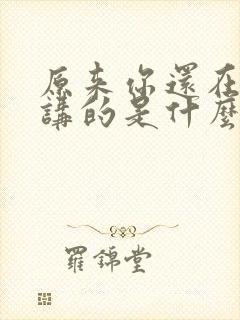 原来你還在
講的是什麼
羅錦堂